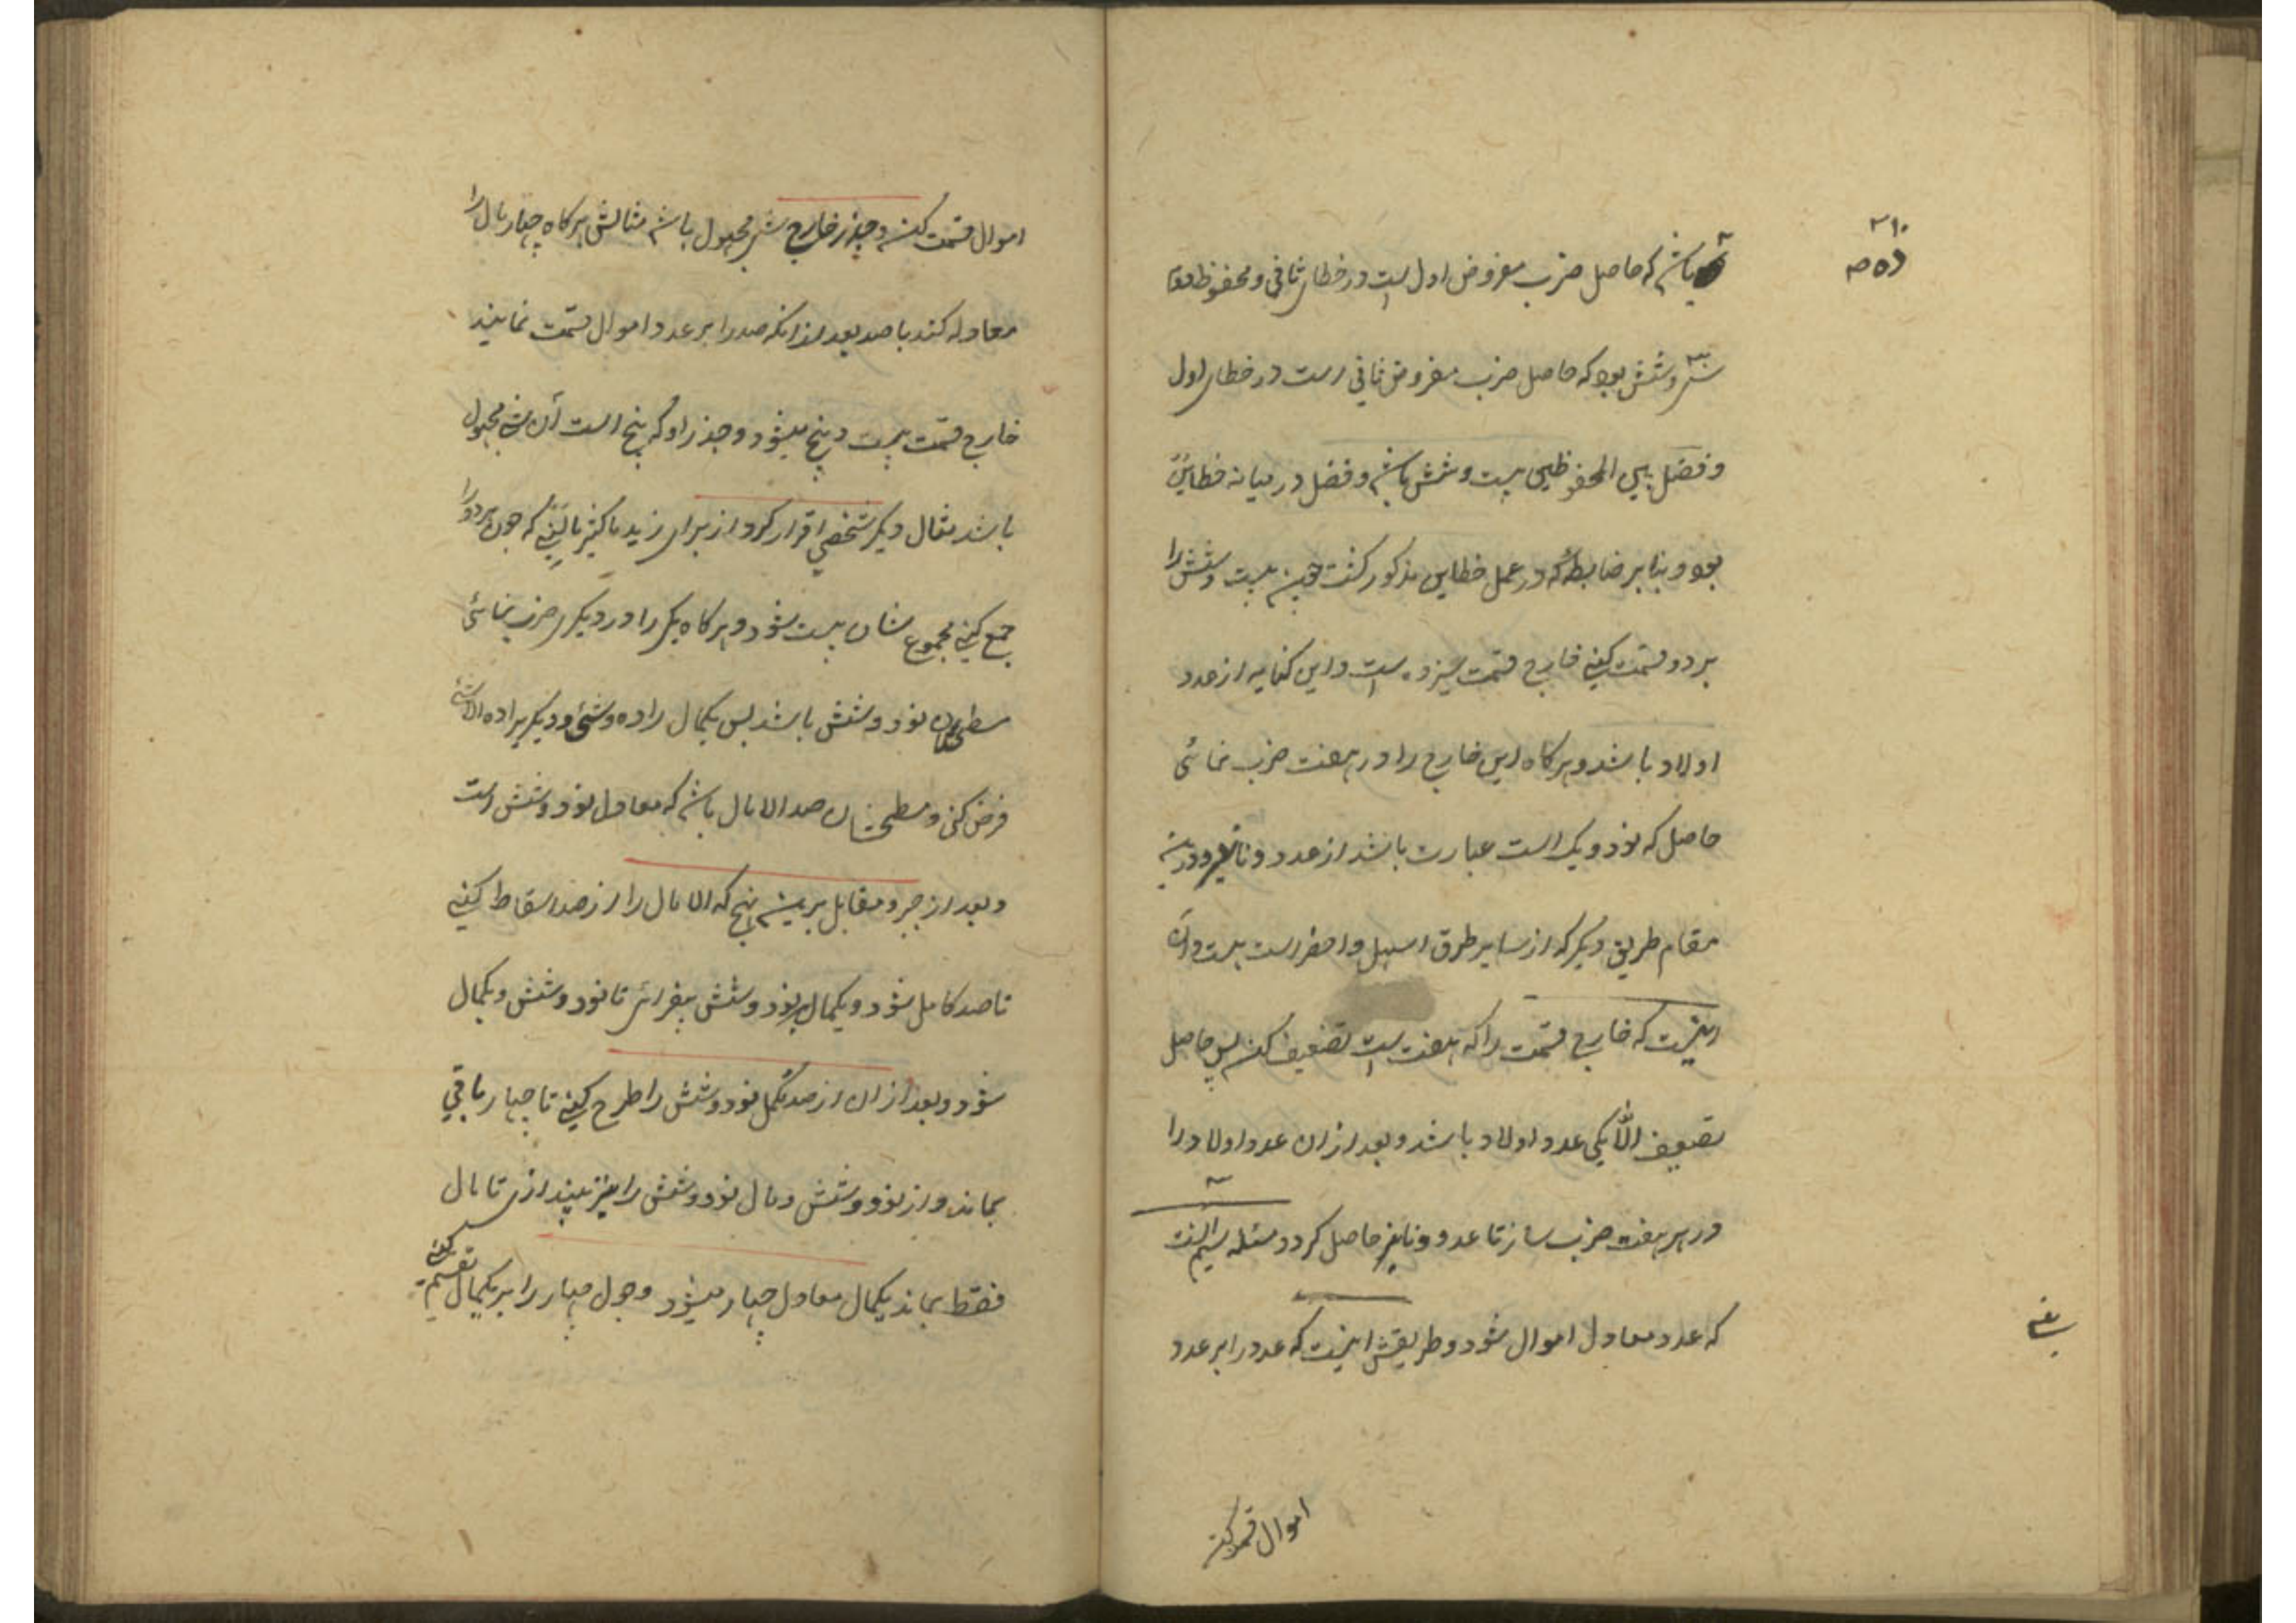 باشد که حاصل ضرب مفروض اول است در خطای ثانی و محفوظ دوم
سی و شش بود که حاصل ضرب مفروض ثانی است در خطای اول
و فضل بین المحفوظین بیست و شش باشد و فضل در میانه خطایین
بود و بنا بر ضابطه که در عمل خطاین مذکور کشت چون بیست و شش را
بر دو قسمت کنی خارج قسمت سیزده است و این کنایه از عدد
اولاد باشد و هر کاه این خارج را در هفت ضرب نمائی
حاصل که نود و یک است عبارت باشد از عدد دنانیر و درین
مقام طریق دیکر که از سایر طرق اسهل و احضر است هست و آن
اینست که خارج قسمت را که هفت است تضعیف کن پس حاصل
تضعیف الّا یکی عدد اولاد باشد و بعد از ان عدد اولاد را
در هر هفت ضرب ساز تا عدد دنانیر حاصل کردد مسئله سیم آنست
که عدد معادل اموال شود و طریقش اینست که عدد را بر عدد
اموال قسمت کن
اموال قسمت کن و جذر خارج شئ مجهول باشد مثالش هر کاه چهار مال را
معادله کند با صد بعد از انکه صد را بر عدد اموال قسمت نمایند
خارج قسمت بیست و پنج میشود و جذر او که پنج است آن شئ مجهول
باشد مثال دیکر شخصی اقرار کرد از برای زید باکثر مالینی که چون هر دو را
جمع کنی مجموع شان بیست شود و هر کاه یکی را در دیکری ضرب نمائی
مسطح شان نود و شش باشد پس یکمال را ده و شئ و دیکری را ده الا شئ
فرض کنی و مسطح شان صد الا مال باشد که معادل نود و شش است
و بعد از جبر و مقابل برین نهج که الا مال را از صد اسقاط کنی
تا صد کامل شود و یکمال بر نود و شش بیفزائی تا نود و شش و یکمال
شود و بعد از ان از صد مکمل نود و شش را طرح کنی تا چهار باقی
بماند و از نود و شش و مال نود و شش را نیز بیندازی تا مال
فقط بماند یکمال معادل چهار میشود و چون چهار را بر یکمال تقسیم کنی